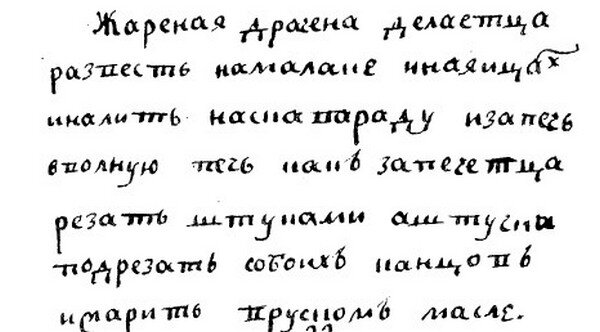 Жареная драчена делаетца
развесть намалаке инаяицах
иналить наскавараду изапечь
вволную печь какъ запечетца
резать штуками аштучки
подрезать собоихъ канцовъ
ижарить врускомъ масле.